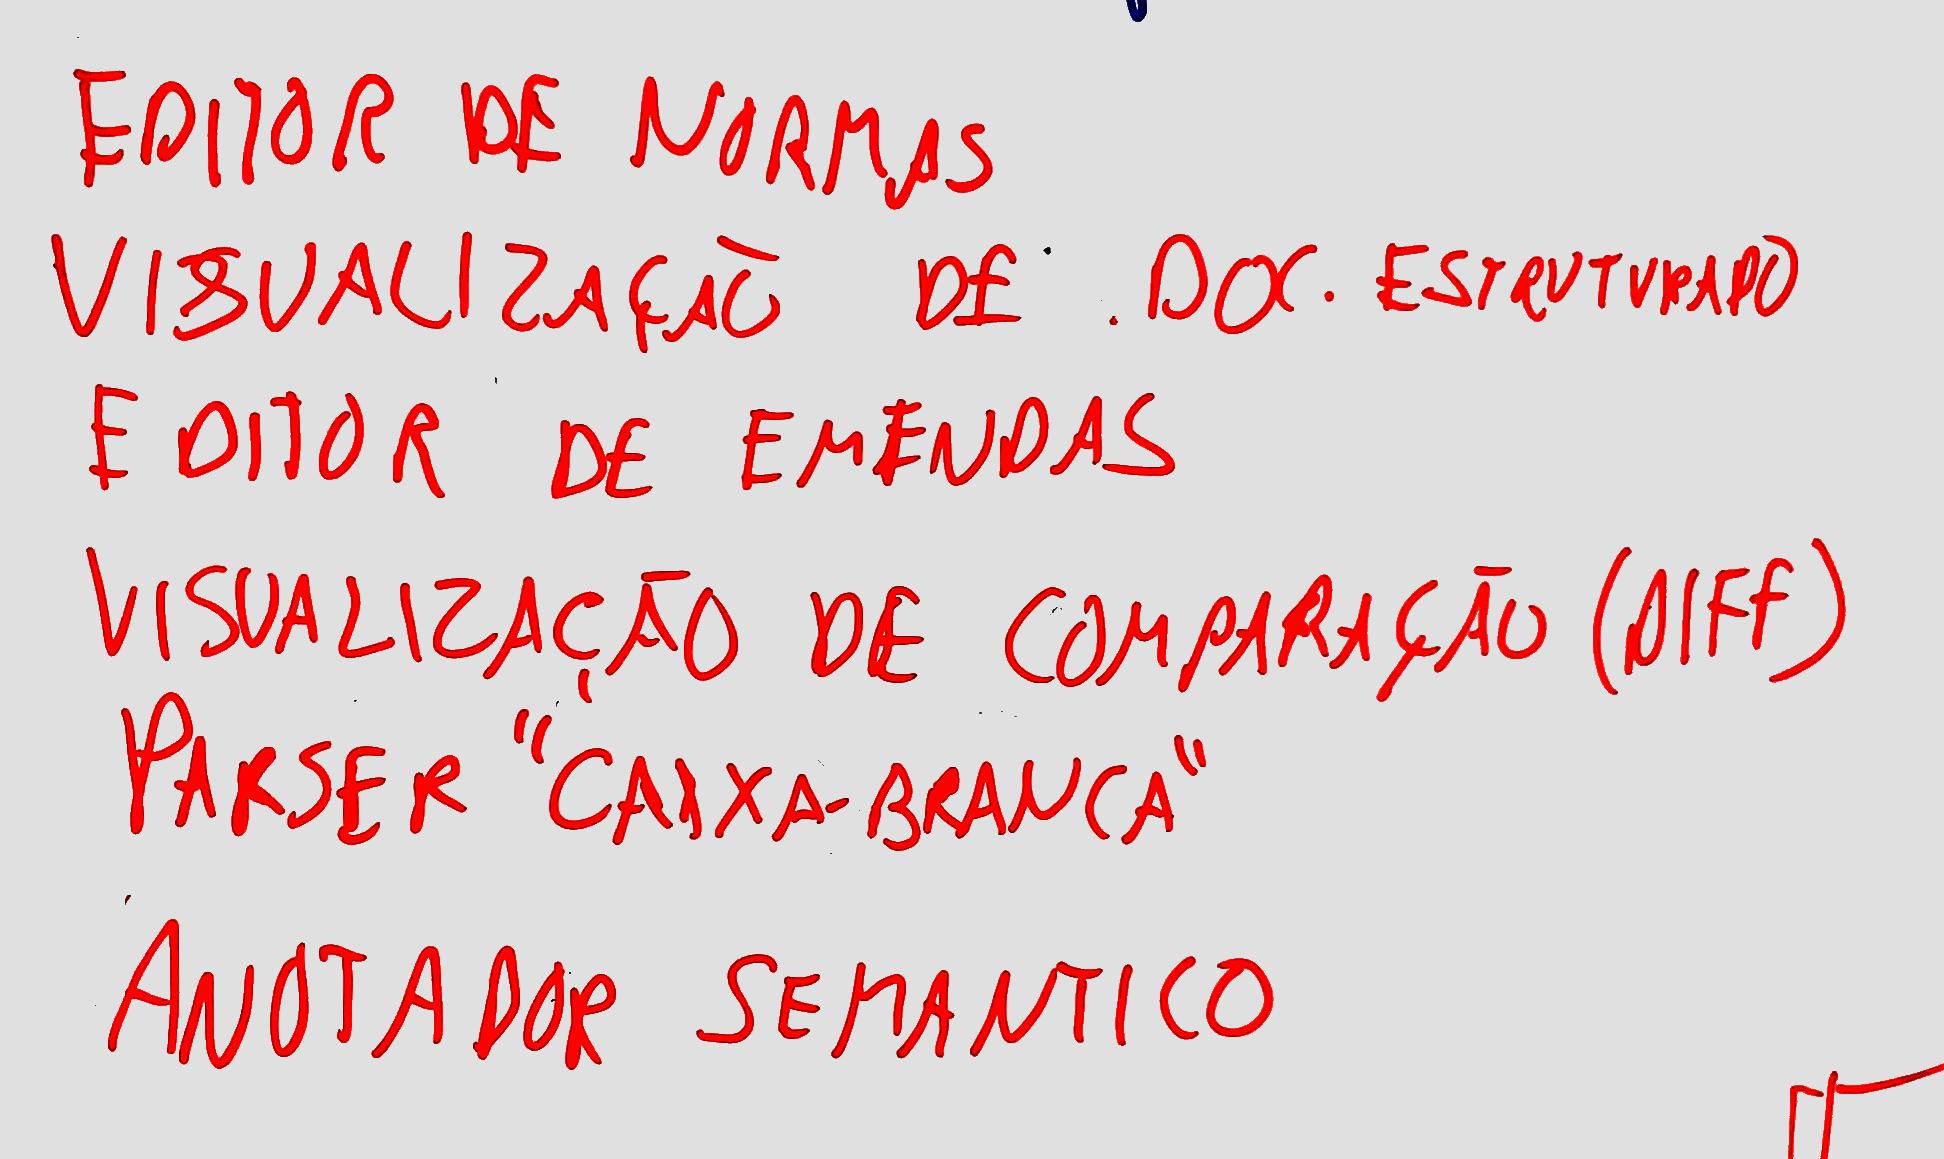 EDITOR DE NORMAS
VISUALIZAÇÃO DE DOC. ESTRUTURADO
EDITOR DE EMENDAS
VISUALIZAÇÃO DE COMPARAÇÃO (DIFF)
PARSER "CAIXA-BRANCA"
ANOTADOR SEMANTICO